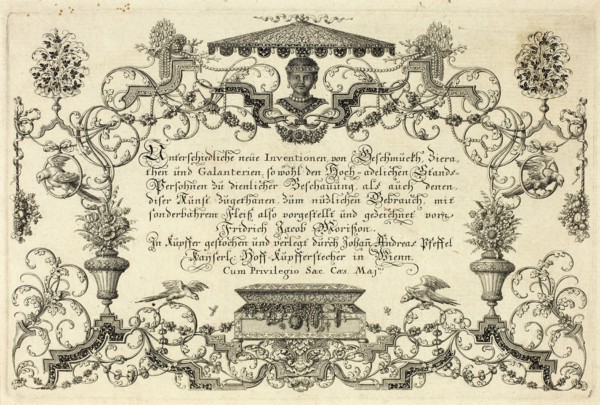 Unterschiedliche neue Inventionen von Geschmückh, Ziera,
then und Galanterien, so wohl den Hoch-adelichen Stands-
Persohnen zu dienlicher Beschauung, als auch denen
diser Künst Zugethanen, zum nüdlichen Gebrauch, mit
sonderbahrem Fleiß also vorgestellt und gedeichnet von
Fridrich Jacob Morisson.
In Kupffer gestochen und verlegt dürch Johañ Andreas Pfeffel
Kayserl. Hoff-Kupfferstecher in Wienn.
Cum Privilegio Sac. Cæs. Maj.